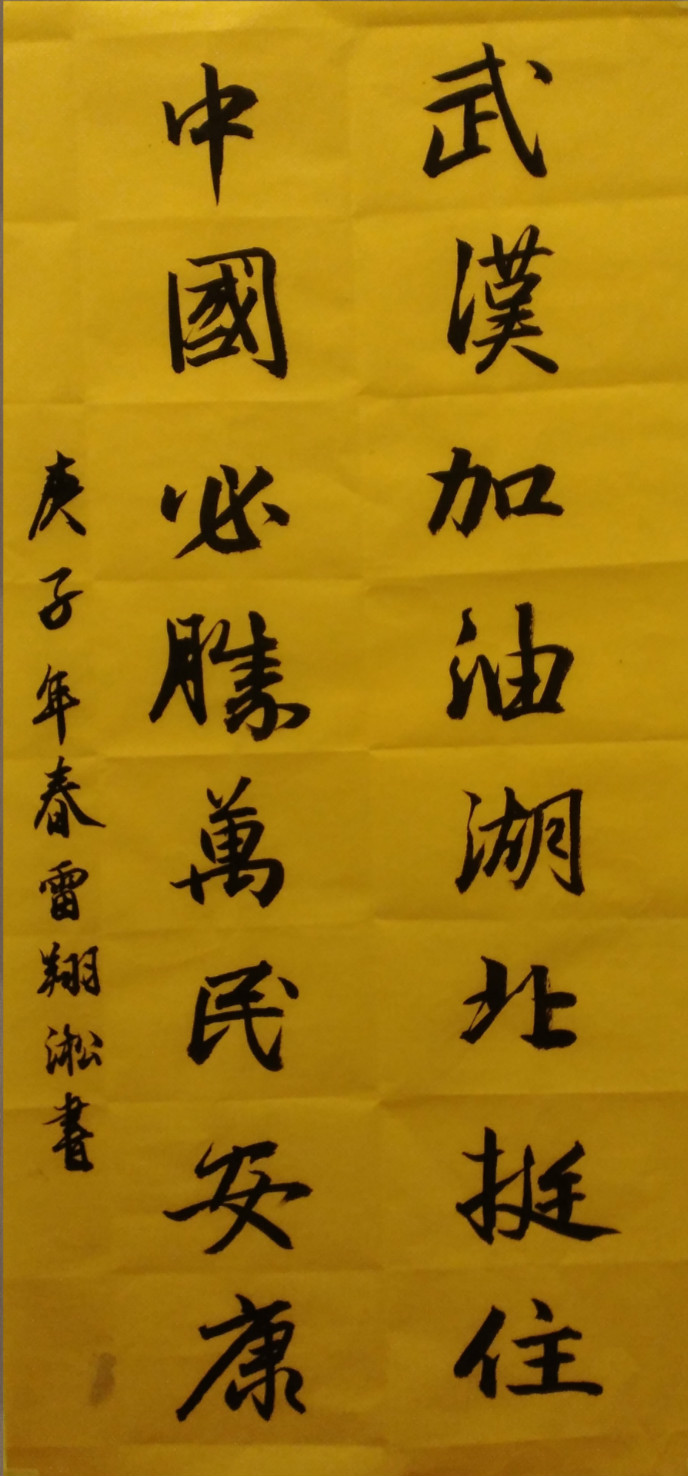 武漢加油湖北挺住
中國必勝萬民安康
庚子年春雷翔淞書